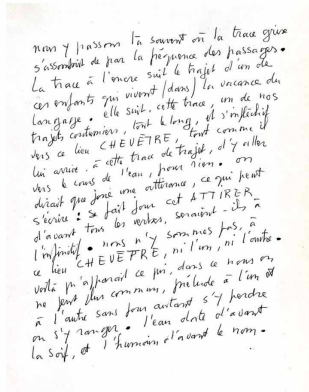 nous y passons là souvent où la trace grise
s'assombrit de par la fréquence des passages.
La trace à l'encre suit le trajet d'un de
ces enfants qui vivent (dans) la vacance du
langage. elle suit, cette trace, un de nos
trajets coutumiers, tout le long, et s'infléchit
vers ce lieu CHEVÊTRE, tout comme il
lui arrive, à cette trace de trajet, d'y aller
vers le cours de l'eau, pour rien. on
dirait que joue une attirance, ce qui peut
s'écrire : se fait jour cet ATTIRER
d'avant tous les verbes, seraient-ils à
l'infinitif. nous n'y sommes pas, à
ce lieu CHEVÊTRE, ni l'un, ni l'autre.
voilà qu'apparaît ce qui, dans ce nous on
ne peut plus commun, prélude à l'un et
à l'autre sans pour autant s'y perdre
ou s'y ranger. l'eau date d'avant
la soif, et l'humain d'avant le nom.